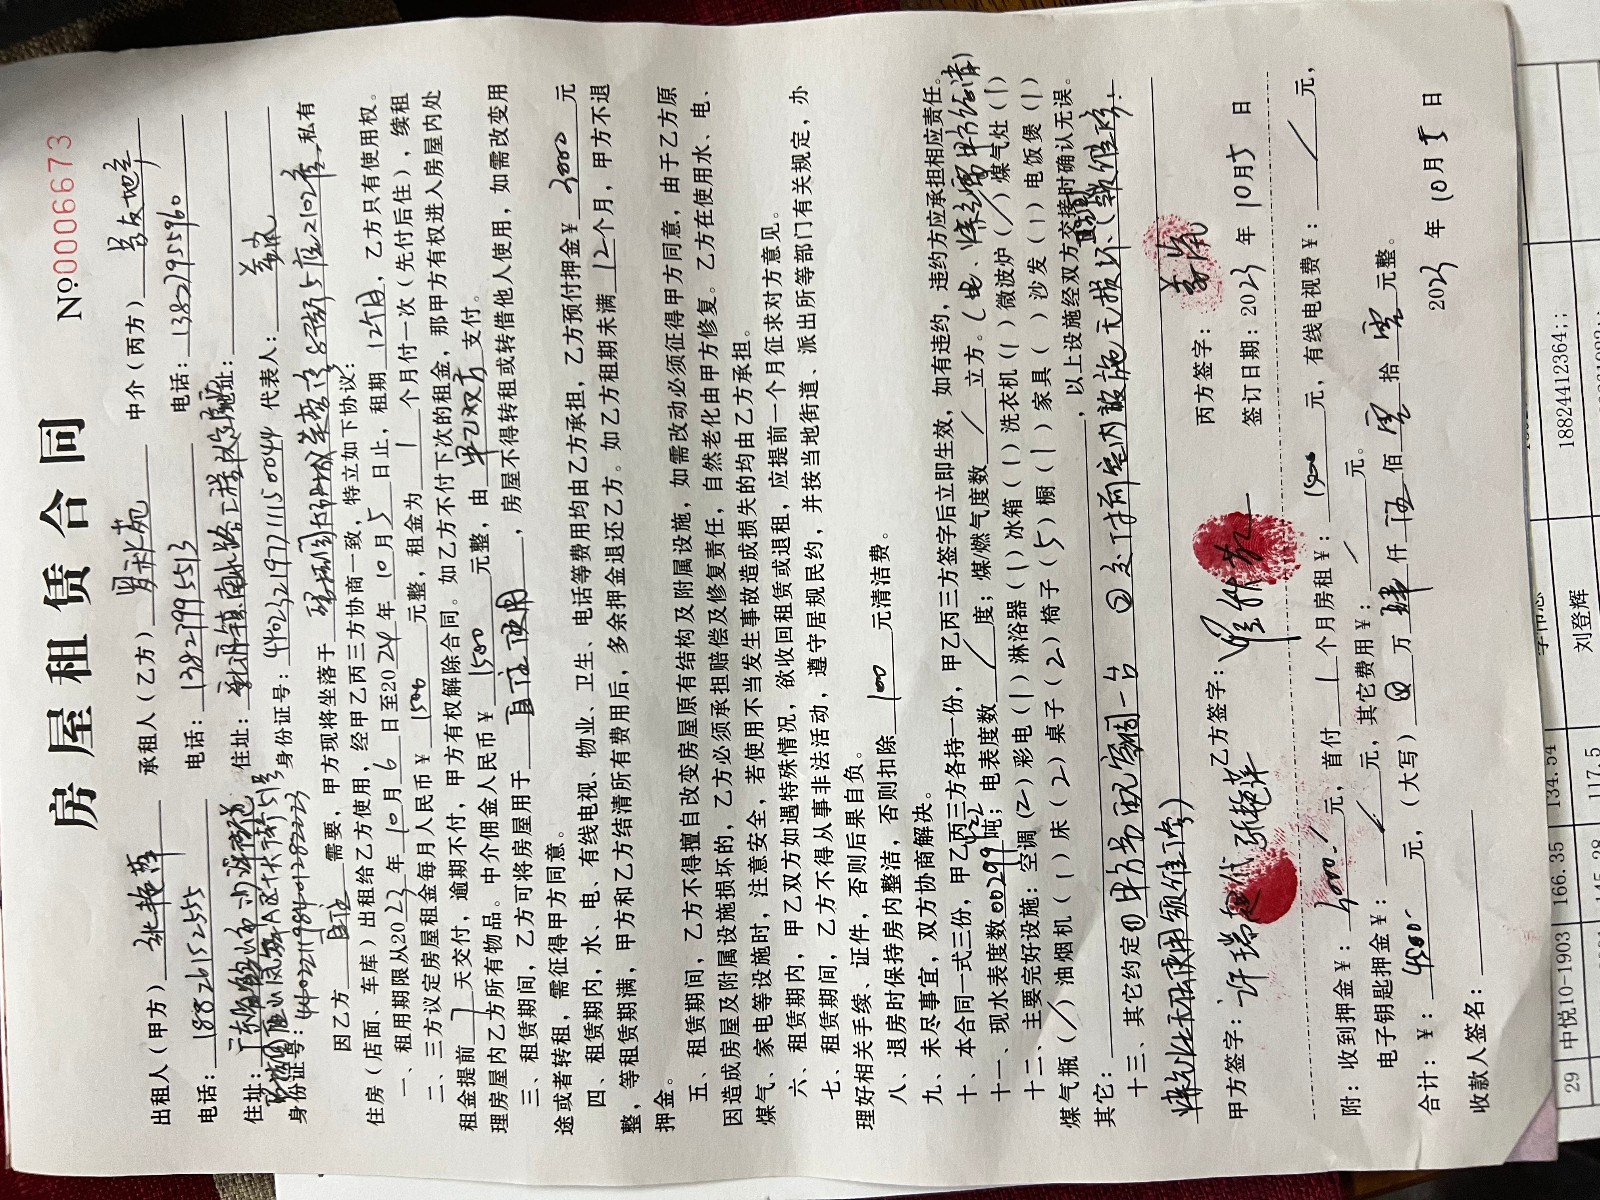 房屋租赁合同
№0006673
出租人（甲方） 张艳萍 承租人（乙方） 中介（丙方）
电话：18826152555 电话：13827995513 电话：13827955960
住址： 住址： 地址：
身份证号：440221198401282223 身份证号： 代表人：
因乙方 自住 需要，甲方现将坐落于 5座2102房 私有
住房（店面、车库）出租给乙方使用，经甲乙丙三方协商一致，特立如下协议：
一、租用期限从2023年10月6日至2024年10月5日止，租期12个月，乙方只有使用权。
二、三方议定房屋租金每月人民币￥1500元整，租金为1个月付一次（先付后住），续租
租金提前7天交付，逾期不付，甲方有权解除合同。如乙方不付下次的租金，那甲方有权进入房屋内处
理房屋内乙方所有物品。中介佣金人民币￥1500元整，由甲乙双方支付。
三、租赁期间，乙方可将房屋用于 自住使用，房屋不得转租或转借他人使用，如需改变用
途或者转租，需征得甲方同意。
四、租赁期内，水、电、有线电视、物业、卫生、电话等费用均由乙方承担，乙方预付押金￥3000元
整，等租赁期满，甲方和乙方结清所有费用后，多余押金退还乙方。如乙方租期未满12个月，甲方不退
押金。
五、租赁期间，乙方不得擅自改变房屋原有结构及附属设施，如需改动必须征得甲方同意，由于乙方原
因造成房屋及附属设施损坏的，乙方必须承担赔偿及修复责任，自然老化由甲方修复。乙方在使用水、电、
煤气、家电等设施时，注意安全，若使用不当发生事故造成损失的均由乙方承担。
六、租赁期内，甲乙双方如遇特殊情况，欲收回租赁或退租，应提前一个月征求对方意见。
七、租赁期间，乙方不得从事非法活动，遵守居规民约，并按当地街道、派出所等部门有关规定，办
理好相关手续、证件，否则后果自负。
八、退房时保持房内整洁，否则扣除100元清洁费。
九、未尽事宜，双方协商解决。
十、本合同一式三份，甲乙丙三方各持一份，甲乙丙三方签字后立即生效，如有违约，违约方应承担相应责任。
十一、现水表度数00299吨；电表度数/度；煤/燃气度数/立方。
十二、主要完好设施：空调（2）彩电（1）淋浴器（1）冰箱（1）洗衣机（1）微波炉（/）煤气灶（1）
煤气瓶（/）油烟机（1）床（2）桌子（2）椅子（5）橱（1）家具（ ）沙发（1）电饭煲（1）
其它： ，以上设施经双方交接时确认无误。
十三、其它约定
甲方签字：许瑞 代 张艳萍 乙方签字： 丙方签字：
签订日期：2023年10月5日
附：收到押金￥：3000元，首付1个月房租￥：1500元，有线电视费￥：/元，
电子钥匙押金￥：/元，其它费用￥：/元。
合计：￥：4500元，（大写）万肆仟伍佰零拾零元整。
收款人签名： 2023年10月5日
18824412364;;
刘登辉
134.54
117.5
166.35
145.28
29 中悦10-1903